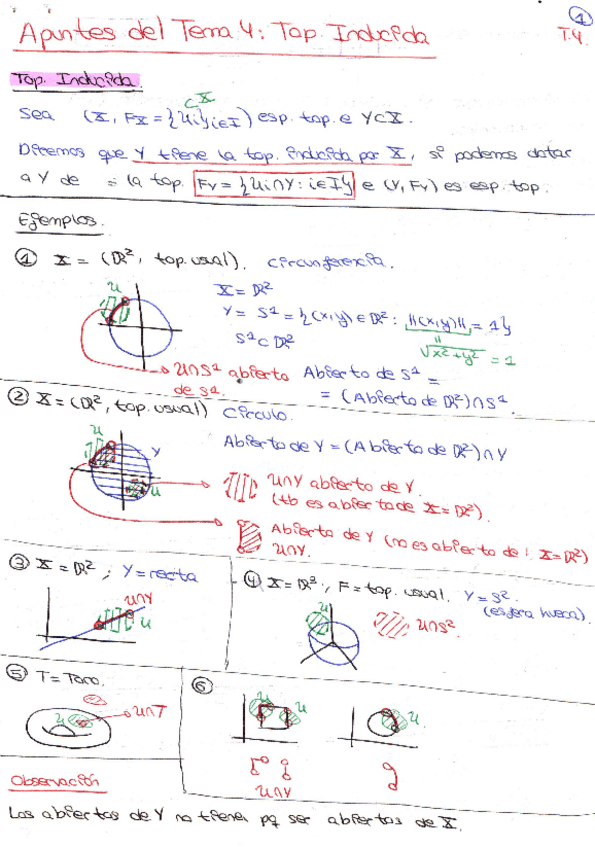 1
Apuntes del Tema 4: Top. Inducida
T.4.
Top. Inducida.
Sea (X, Fx = {Ui}i∈I) esp. top. e Y⊂X.
⊂X
Diremos que Y tiene la top. inducida por X, si podemos dotar
a Y de = la top. Fy = {Ui∩Y : i∈I} e (Y, Fy) es esp. top.
Ejemplos.
① X = (R², top. usual). Circunferencia.
U
X = R²
Y = S¹ = {(x,y) ∈ R² : ||(x,y)|| = 1}
S¹⊂R²
√x²+y² = 1
U∩S¹ abierto
de S¹.
Abierto de S¹ =
= (Abierto de R²)∩S¹.
② X = (R², top. usual) Círculo.
Abierto de Y = (Abierto de R²)∩Y
U
Y
U
U∩Y abierto de Y.
(tb es abierto de X = R²).
Abierto de Y (no es abierto de : X = R²)
U∩Y.
③ X = R² ; Y = recta
U∩Y
U
④ X = R³, F = top. usual. Y = S².
(esfera hueca).
U
U∩S².
⑤ T = Toro.
U
U∩T
⑥
U
U
U
U∩Y
Observación
Los abiertos de Y no tienen pq ser abiertos de X.